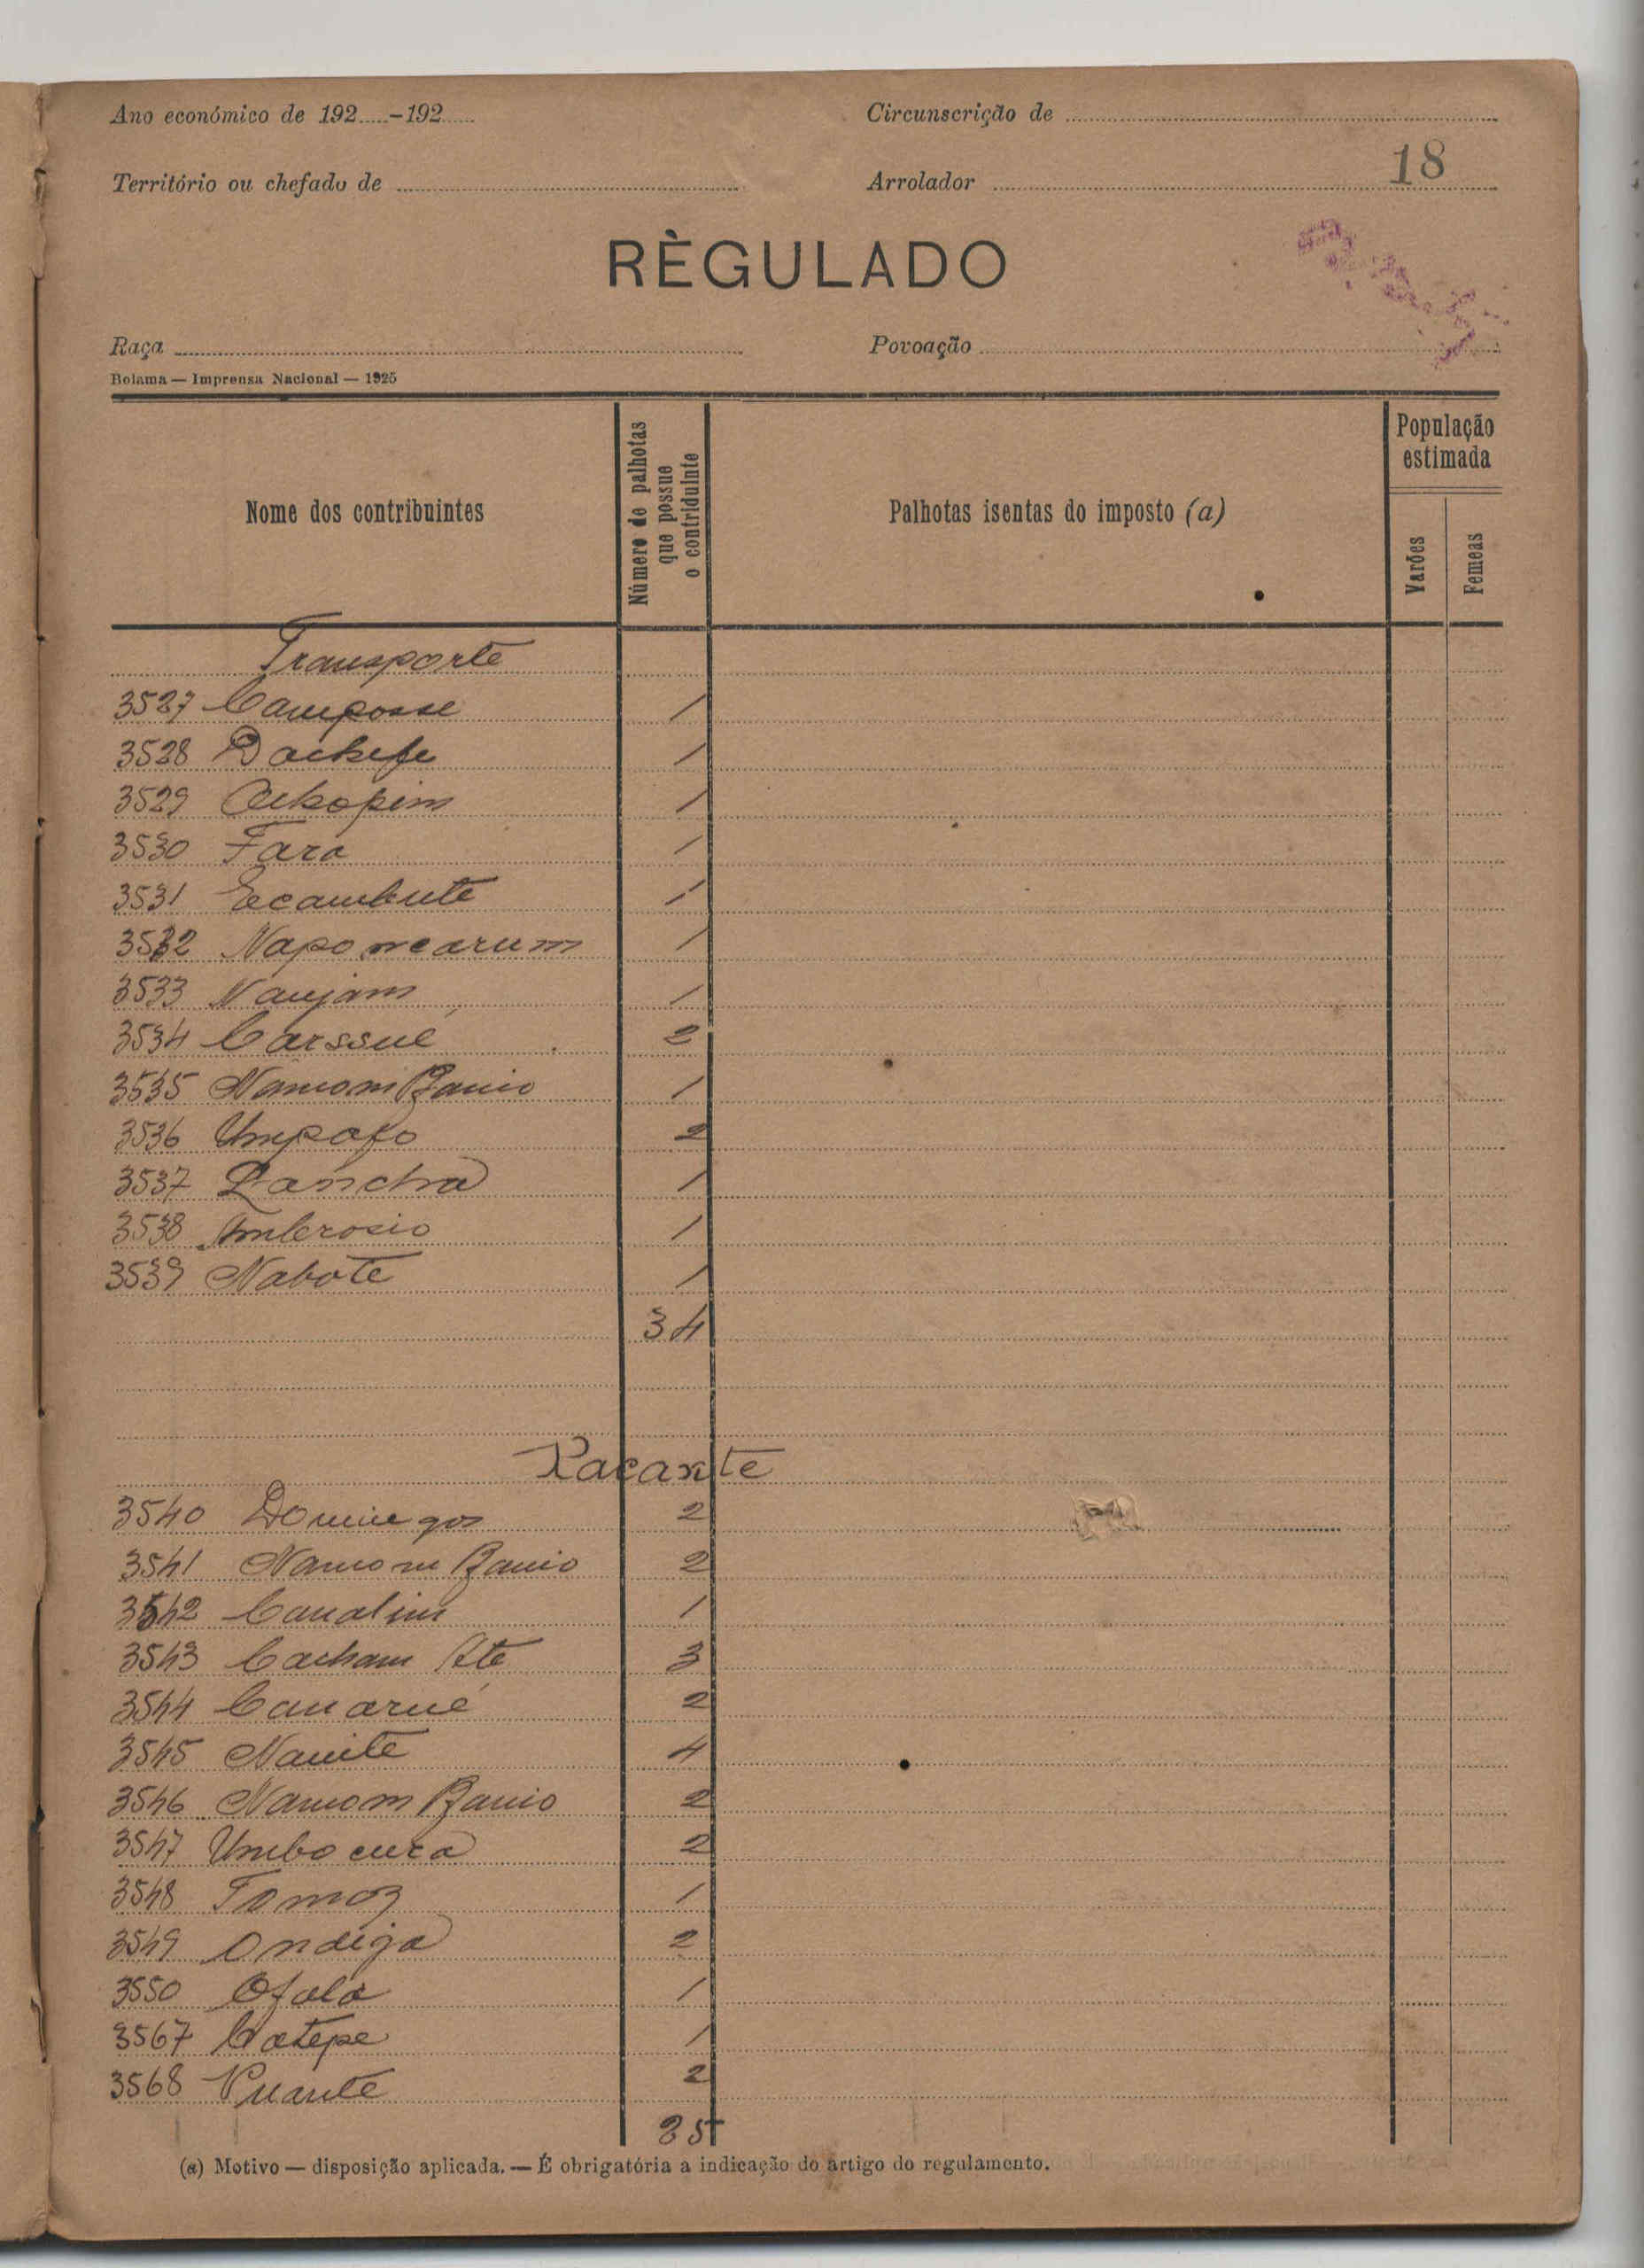 Ano económico de 192.....-192......
Circunscrição de
18
Território ou chefado de
Arrolador
RÈGULADO
Raça
Povoação
Bolama — Imprensa Nacional — 1925
Nome dos contribuintes
Número de palhotas que possue o contriduinte
Palhotas isentas do imposto (a)
População estimada
Varões
Femeas
Transporte
3527 Camposse 1
3528 1
3529 1
3530 Fara 1
3531 Ecambute 1
3532 1
3533 Naujam 1
3534 Carssué 2
3535 Namom Banio 1
3536 Umpofo 2
3537 1
3538 Ambrosio 1
3539 Nabote 1
34
3540 Domingos 2
3541 Namom Banio 2
3542 Canalim 1
3543 Cacham Ate 3
3544 Canarué 2
3545 Nauite 4
3546 Namom Banio 2
3547 Umbo cura 2
3548 Tomoz 1
3549 Ondiga 2
3550 Ofala 1
3567 Catepe 1
3568 2
(a) Motivo — disposição aplicada. — É obrigatória a indicação do artigo do regulamento.